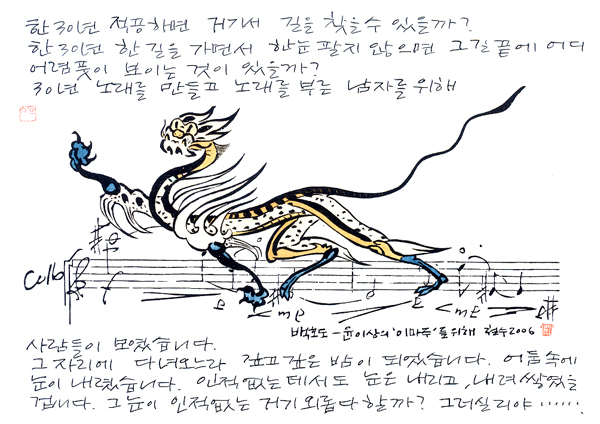 한 30년 적공하면 거기서 길을 찾을수 있을까?
한 30년 한 길을 가면서 한눈 팔지 않으면 그 길 끝에 어디
어렴풋이 보이는 것이 있을까?
30년 노래를 만들고 노래를 부른 남자를 위해
Cello
f
p
< mp
p
< mp
> p
백호도 - 윤이상의 '이마주'를 위해 철수 2006
사람들이 모였습니다.
그 자리에 다녀오느라 깊고 깊은 밤이 되었습니다. 어둠속에
눈이 내렸습니다. 인적없는 데서도 눈은 내리고, 내려 쌓였을
겁니다. 그 눈이 인적없는 거기 외롭다 할까? 그러실리야 ......